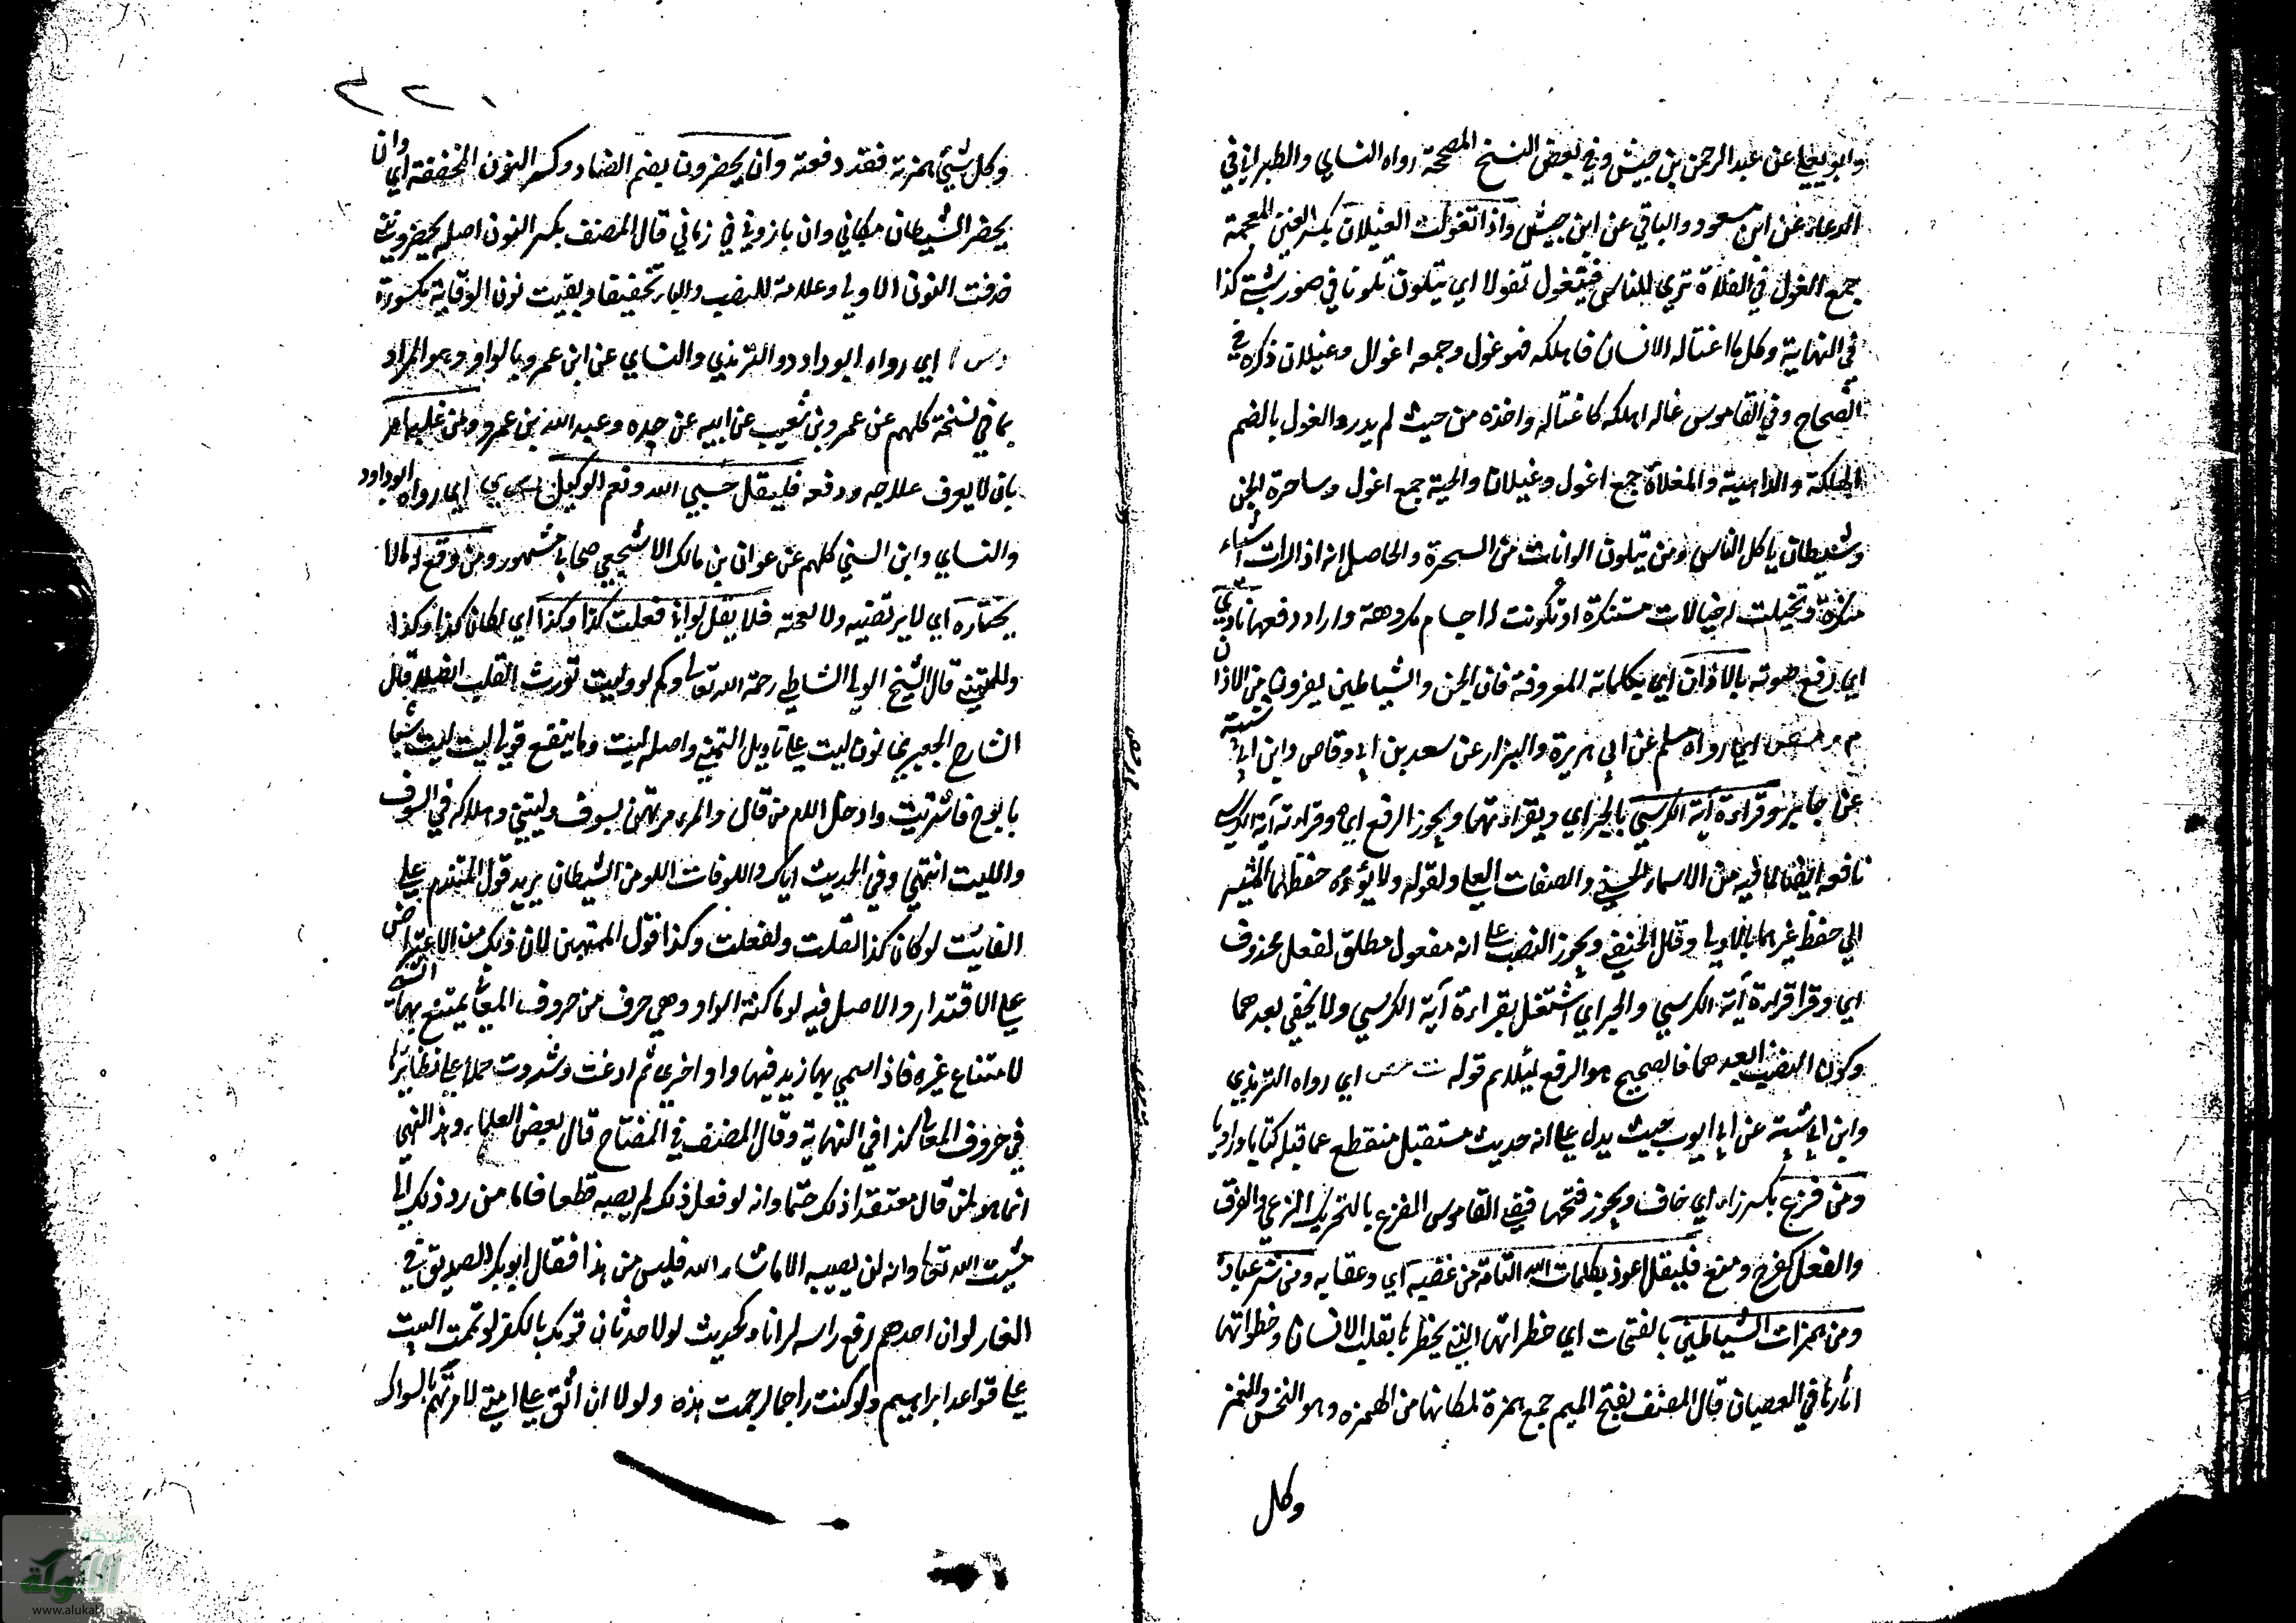 وابو يعلى عن عبد الرحمن بن حبيش وفي بعض النسخ المصححة رواه النساي والطبراني في
الدعاء عن ابن مسعود والباقي عن ابن حبيش واذا تغولت الغيلان بكسر الغين المعجمة
جمع الغول في الفلاة ترى للناس فيتغول تغولا اي يتلون تلونا في صور شتى كذا
في النهاية وكل ما اغتاله الانسان فاهلكه فهو غول وجمعه اغوال وغيلان ذكره في
الصحاح وفي القاموس غاله اهلكه كاغتاله واخذه من حيث لم يدر والغول بالضم
الهلكة والداهية والمغلاة جمع اغول وغيلان والحية جمع اغول وساحرة الجن
وشيطان ياكل الناس ومن يتلون الوانا من السحرة والحاصل انه اذا رات اشياء
منكرة وتخيلت له خيالات مستنكرة او تكونت له اجسام مكروهة واراد دفعها نادى
اي رفع صوته بالاذان اي بكلماته المعروفة فان الجن والشياطين يفرون من الاذان
م ر مص اي رواه مسلم عن ابي هريرة والبزار عن سعد بن ابي وقاص وابن ابي شيبة
عن جابر وقراءة آية الكرسي بالجر اي وبقراءتها ويجوز الرفع اي وقراءته آية الكرسي
نافعه ايضا لما فيه من الاسماء الحسنى والصفات العلى ولقوله ولا يؤده حفظهما المشير
الى حفظ غيرهما بالاولى وقال الحنفي ويجوز النصب على انه مفعول مطلق لفعل محذوف
اي وقرا قراءة آية الكرسي والجر اي اشتغل بقراءة آية الكرسي ولا يخفى بعدهما
وكون النصب ابعدهما فالصحيح هو الرفع ليلايم قوله ت مص اي رواه الترمذي
وابن ابي شيبة عن ابي ايوب حيث يدل على انه حديث مستقبل منقطع عما قبله كتابا وراويا
ومن فزع بكسر زاء اي خاف ويجوز فتحها ففي القاموس الفزع بالتحريك الذعر والفرق
والفعل كفرح ومنع فليقل اعوذ بكلمات الله التامة من غضبه اي وعقابه ومن شر عباده
ومن همزات الشياطين بالفتحات اي خطراتها التي يخطرها بقلب الانسان وخطواتها
اثارها في العصيان قال المصنف بفتح الميم جمع همزة لمكانها من الهمزه وهو النخس والغمز
وكل
٢٢١
وكل شيئ همزته فقد دفعته وان يحضرون بضم الضاد وكسر النون المخففة اي وان
يحضر الشيطان مكاني وان يازوني في زماني قال المصنف بكسر النون اصله يحضرونني
حذفت النون الاولى وعلامة للنصب والياء تخفيفا وبقيت نون الوقاية مكسورة
اي رواه ابو داود والترمذي والنساي عن ابن عمرو بالواو وهو المراد
بما في نسخة كلهم عن عمرو بن شعيب عن ابيه عن جده وعبد الله بن عمرو ومن غلبه امر
بان لا يعرف علاجه ودفعه فليقل حسبي الله ونعم الوكيل د س ي اي رواه ابو داود
والنساي وابن السني كلهم عن عوف بن مالك الاشجعي صحابي مشهور ومن وقع له ما لا
يختاره اي لا يرتضيه ولا يعجبه فلا يقل لو اني فعلت كذا وكذا اي لكان كذا وكذا
وللتمني قال الشيخ الولي الشاطبي رحمة الله تعالى وكم لو وليت تورث القلب انصلا قال
الشارح الجعبري نون ليت على تاويل التمني واصله ليت وما ينفع قولي ليت ليت شبابا
بابوع فاشتريت وادخل اللام من قال والمرء مرتهن بسوف وليتني وهلاكه في السوف
والليت انتهى وفي الحديث اياك واللو فان اللو من الشيطان يريد قول المتندم على
الفايت لو كان كذا لقلت ولفعلت وكذا قول المتمني لان ذلك من الاعتراض
على الاقتدار والاصل فيه لو ساكنة الواو وهي حرف من حروف المعاني يمتنع بها الشئ
لامتناع غيره فاذا سمي بها زيد فيها واو اخرى ثم ادغمت وشددت حملا على نظايرها
في حروف المعاني كذا في النهاية وقال المصنف في المفتاح قال بعض العلماء وهذا النهي
انما هو لمن قال معتقدا ذلك حتما وانه لو فعل ذلك لم يصبه قطعا فاما من رد ذلك الى
مشيت الله تعالى وانه لن يصيبه الا ما شاء الله فليس من هذا فقال ابو بكر الصديق في
الغار لو ان احدهم رفع راسه لرانا وكحديث لولا حدثان قومك بالكفر لوتممت البيت
على قواعد ابراهيم ولو كنت راجما لرجمت هذه ولولا ان اشق على امتي لامرتهم بالسواك
شبكة
الألوكة
www.alukah.net